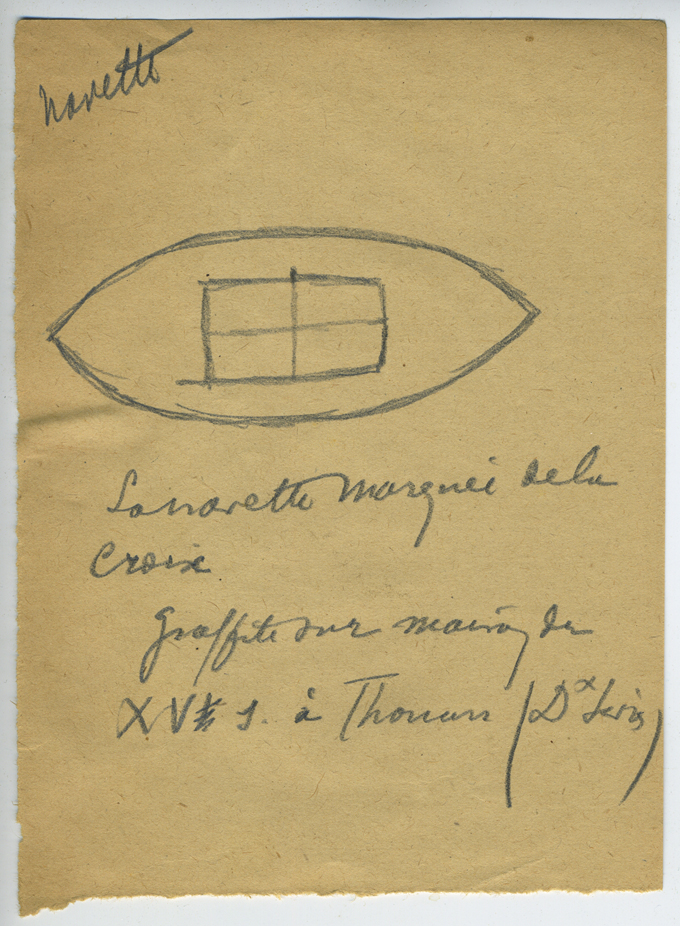 navette
La navette marquée de la
Croix
Graffite sur maison du
XVe s. à Thouars (Dx Sèvres)